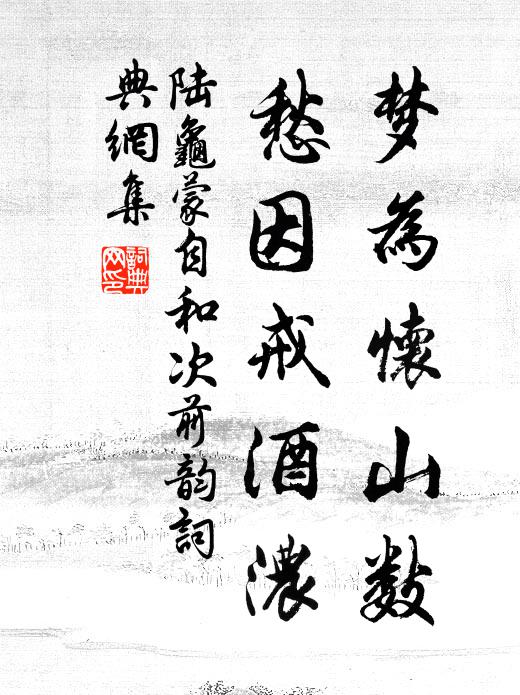 梦為懷山數
愁因戒酒濃
陆龜蒙自和次前韵詞
典網集
詞典
网印